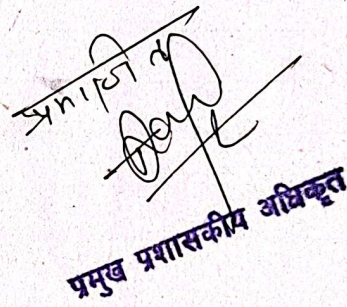 प्रमाणित
प्रमुख प्रशासकीय अधिकृत